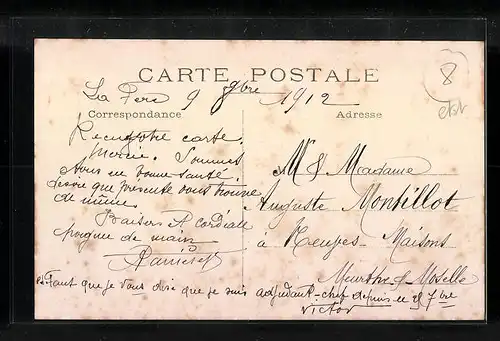 CARTE POSTALE
La Fère 9 9bre 1912
Correspondance
Adresse
Reçu votre carte.
Merci. Sommes
tous en bonne santé.
désire que présente vous trouve
de même.
Baisers et cordiale
poignée de main
Mr & Madame
Auguste Montillot
à Neuves-Maisons
Meurthe & Moselle
Faut que je vous dise que je suis adjudant-chef depuis le 25 7bre
Victor
8